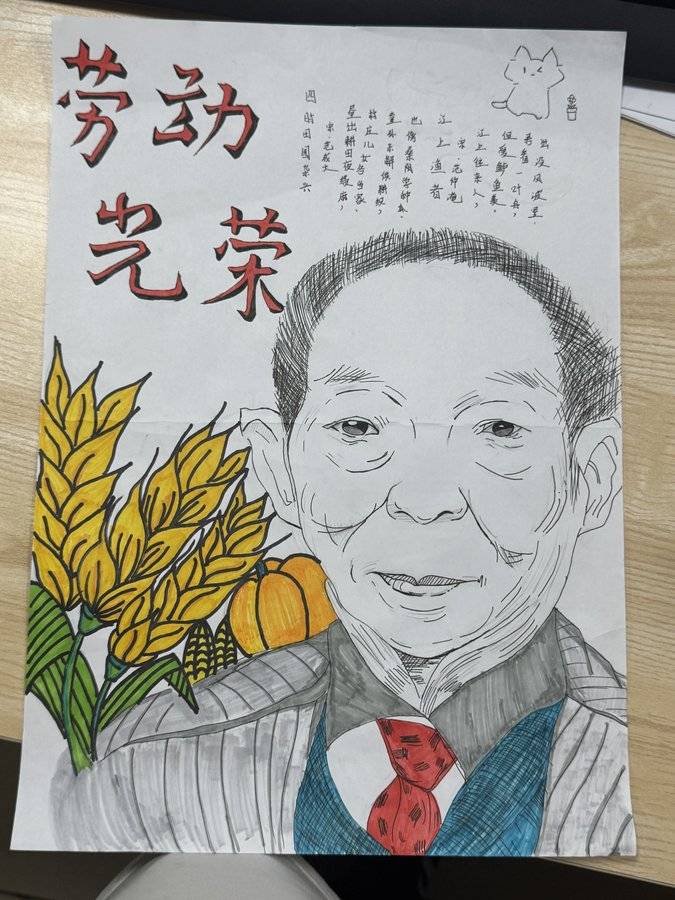 劳动
光荣
四时田园杂兴
宋.范成大
昼出耕田夜绩麻,
村庄儿女各当家。
童孙未解供耕织,
也傍桑阴学种瓜。
江上渔者
宋.范仲淹
江上往来人,
但爱鲈鱼美。
君看一叶舟,
出没风波里.